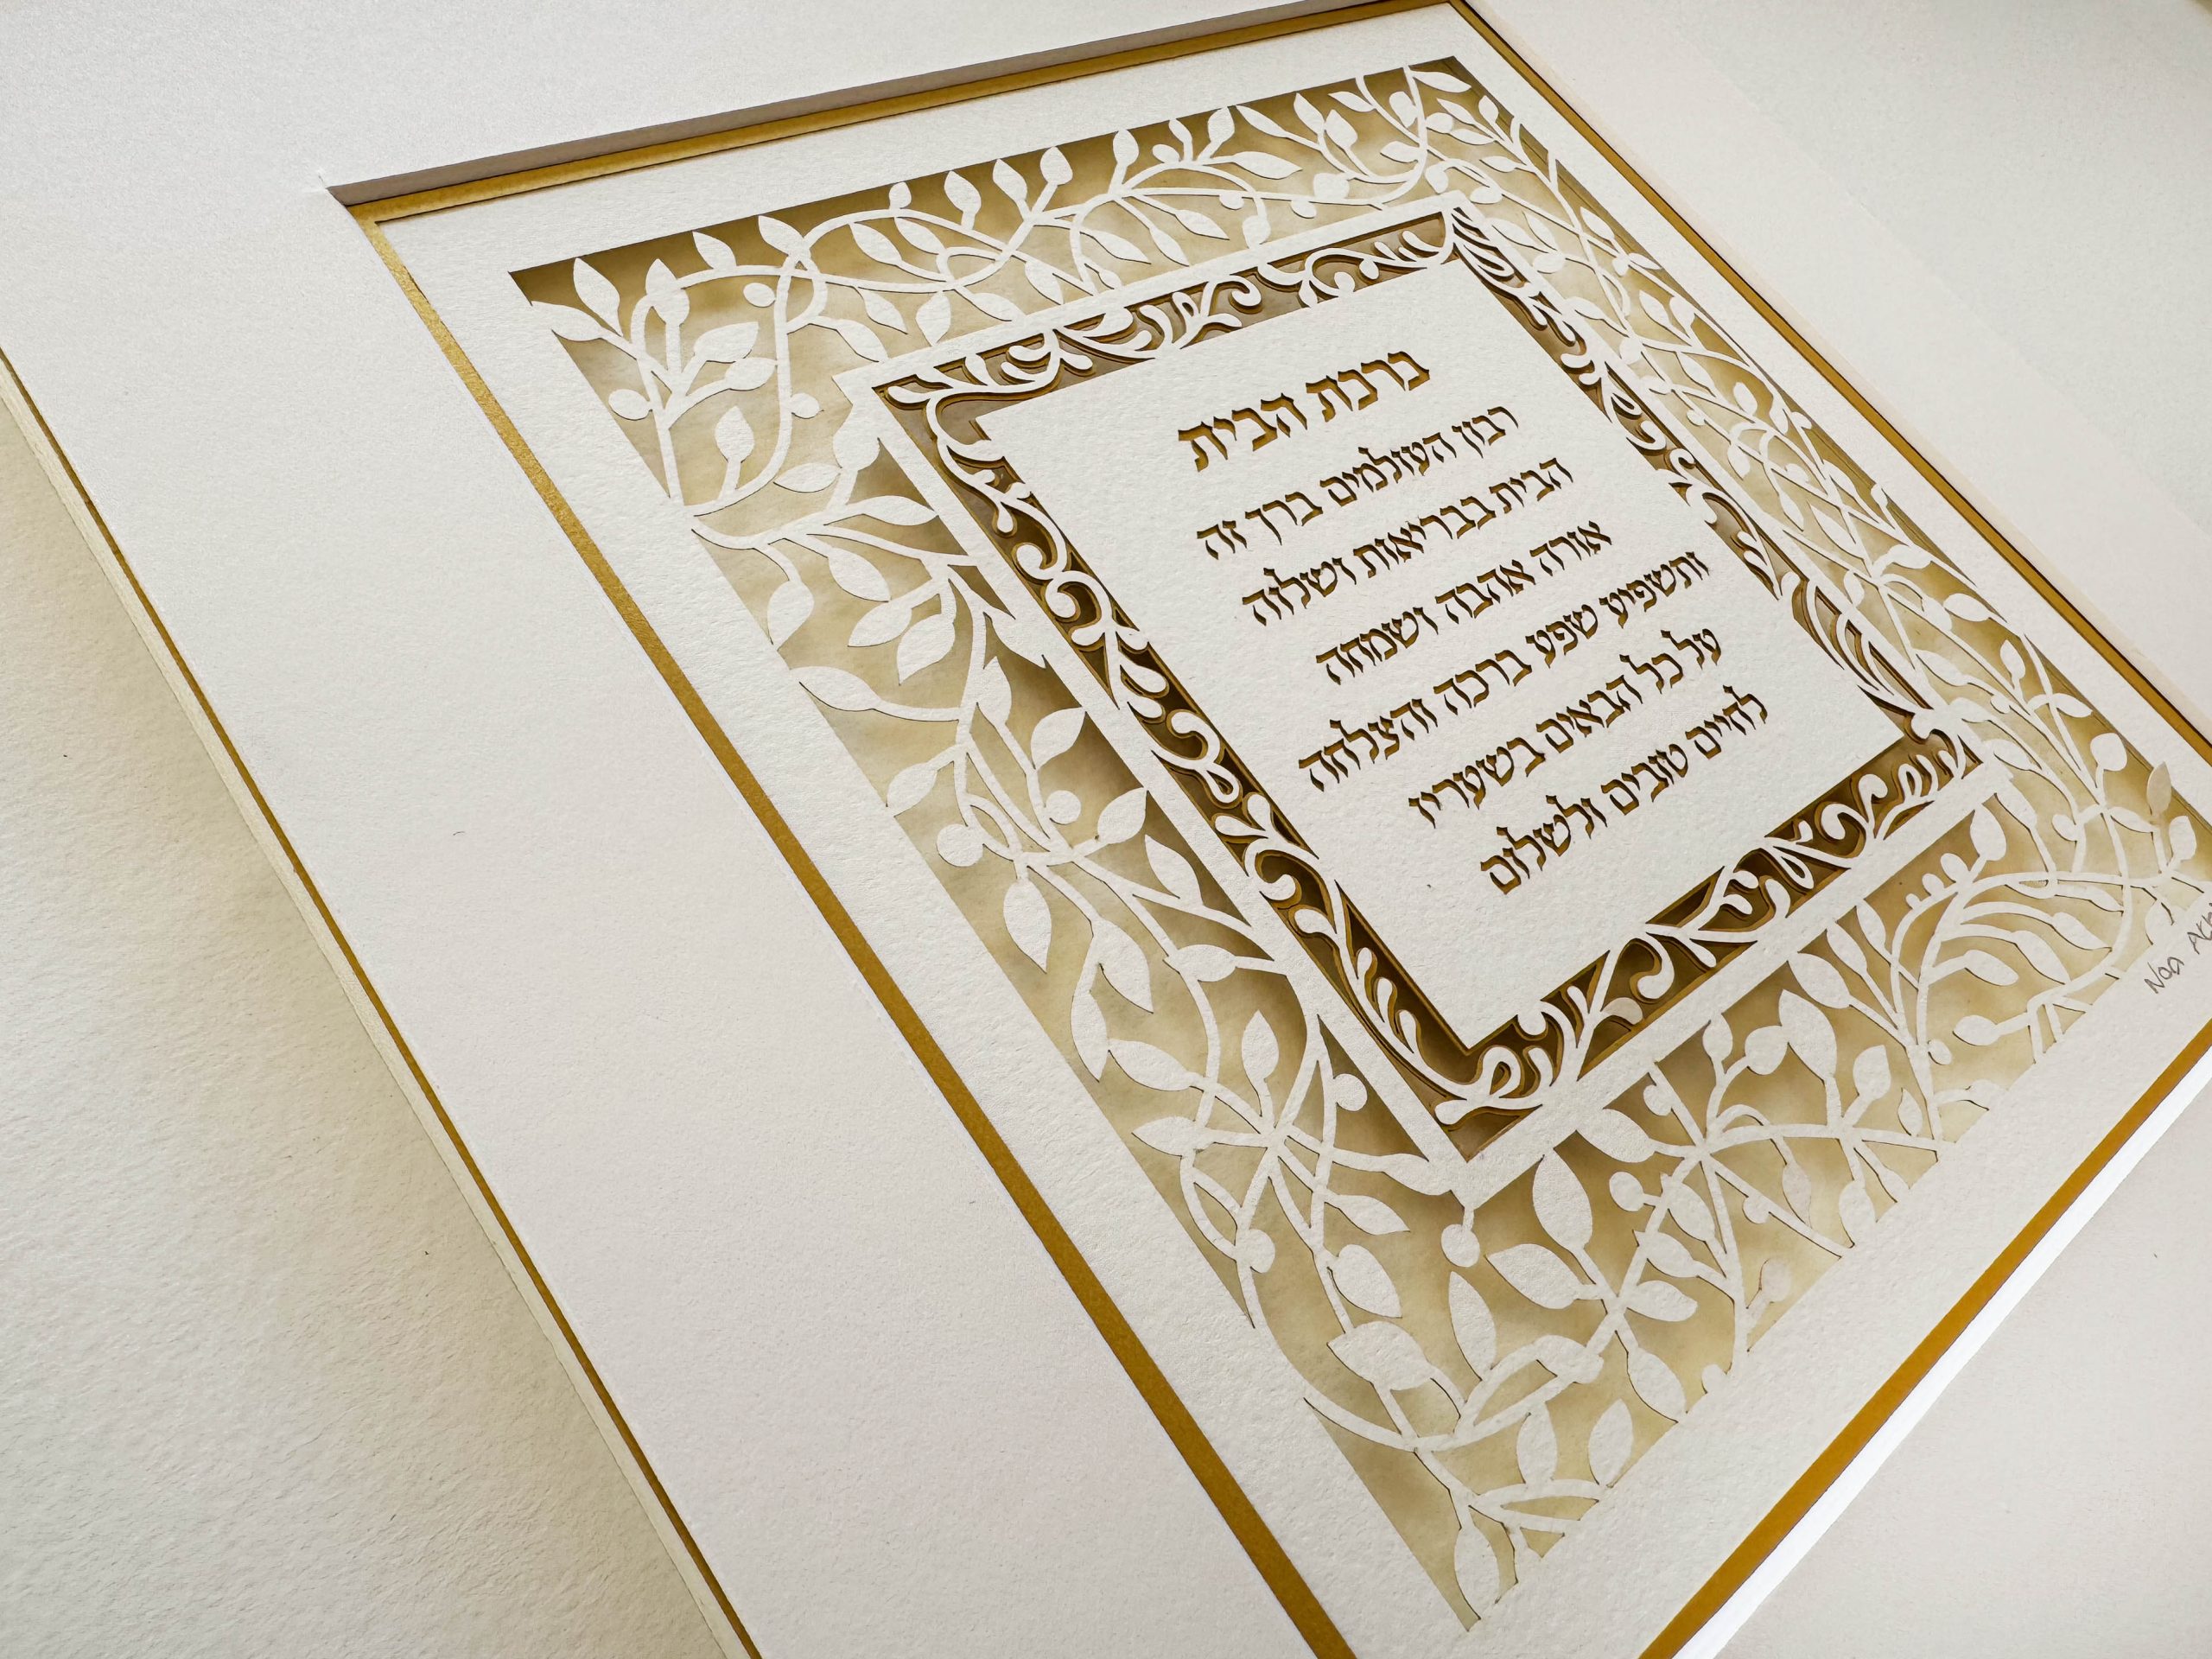 ברכת הבית
רבון העולמים ברך זה
הבית בבריאות ושלוה
אורה אהבה ושמחה
ותשפיע שפע ברכה והצלחה
על כל הבאים בשעריו
לחיים טובים ולשלום
Noa